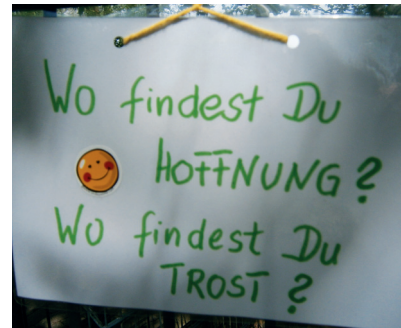 Wo findest Du
HOFFNUNG?
Wo findest Du
TROST?